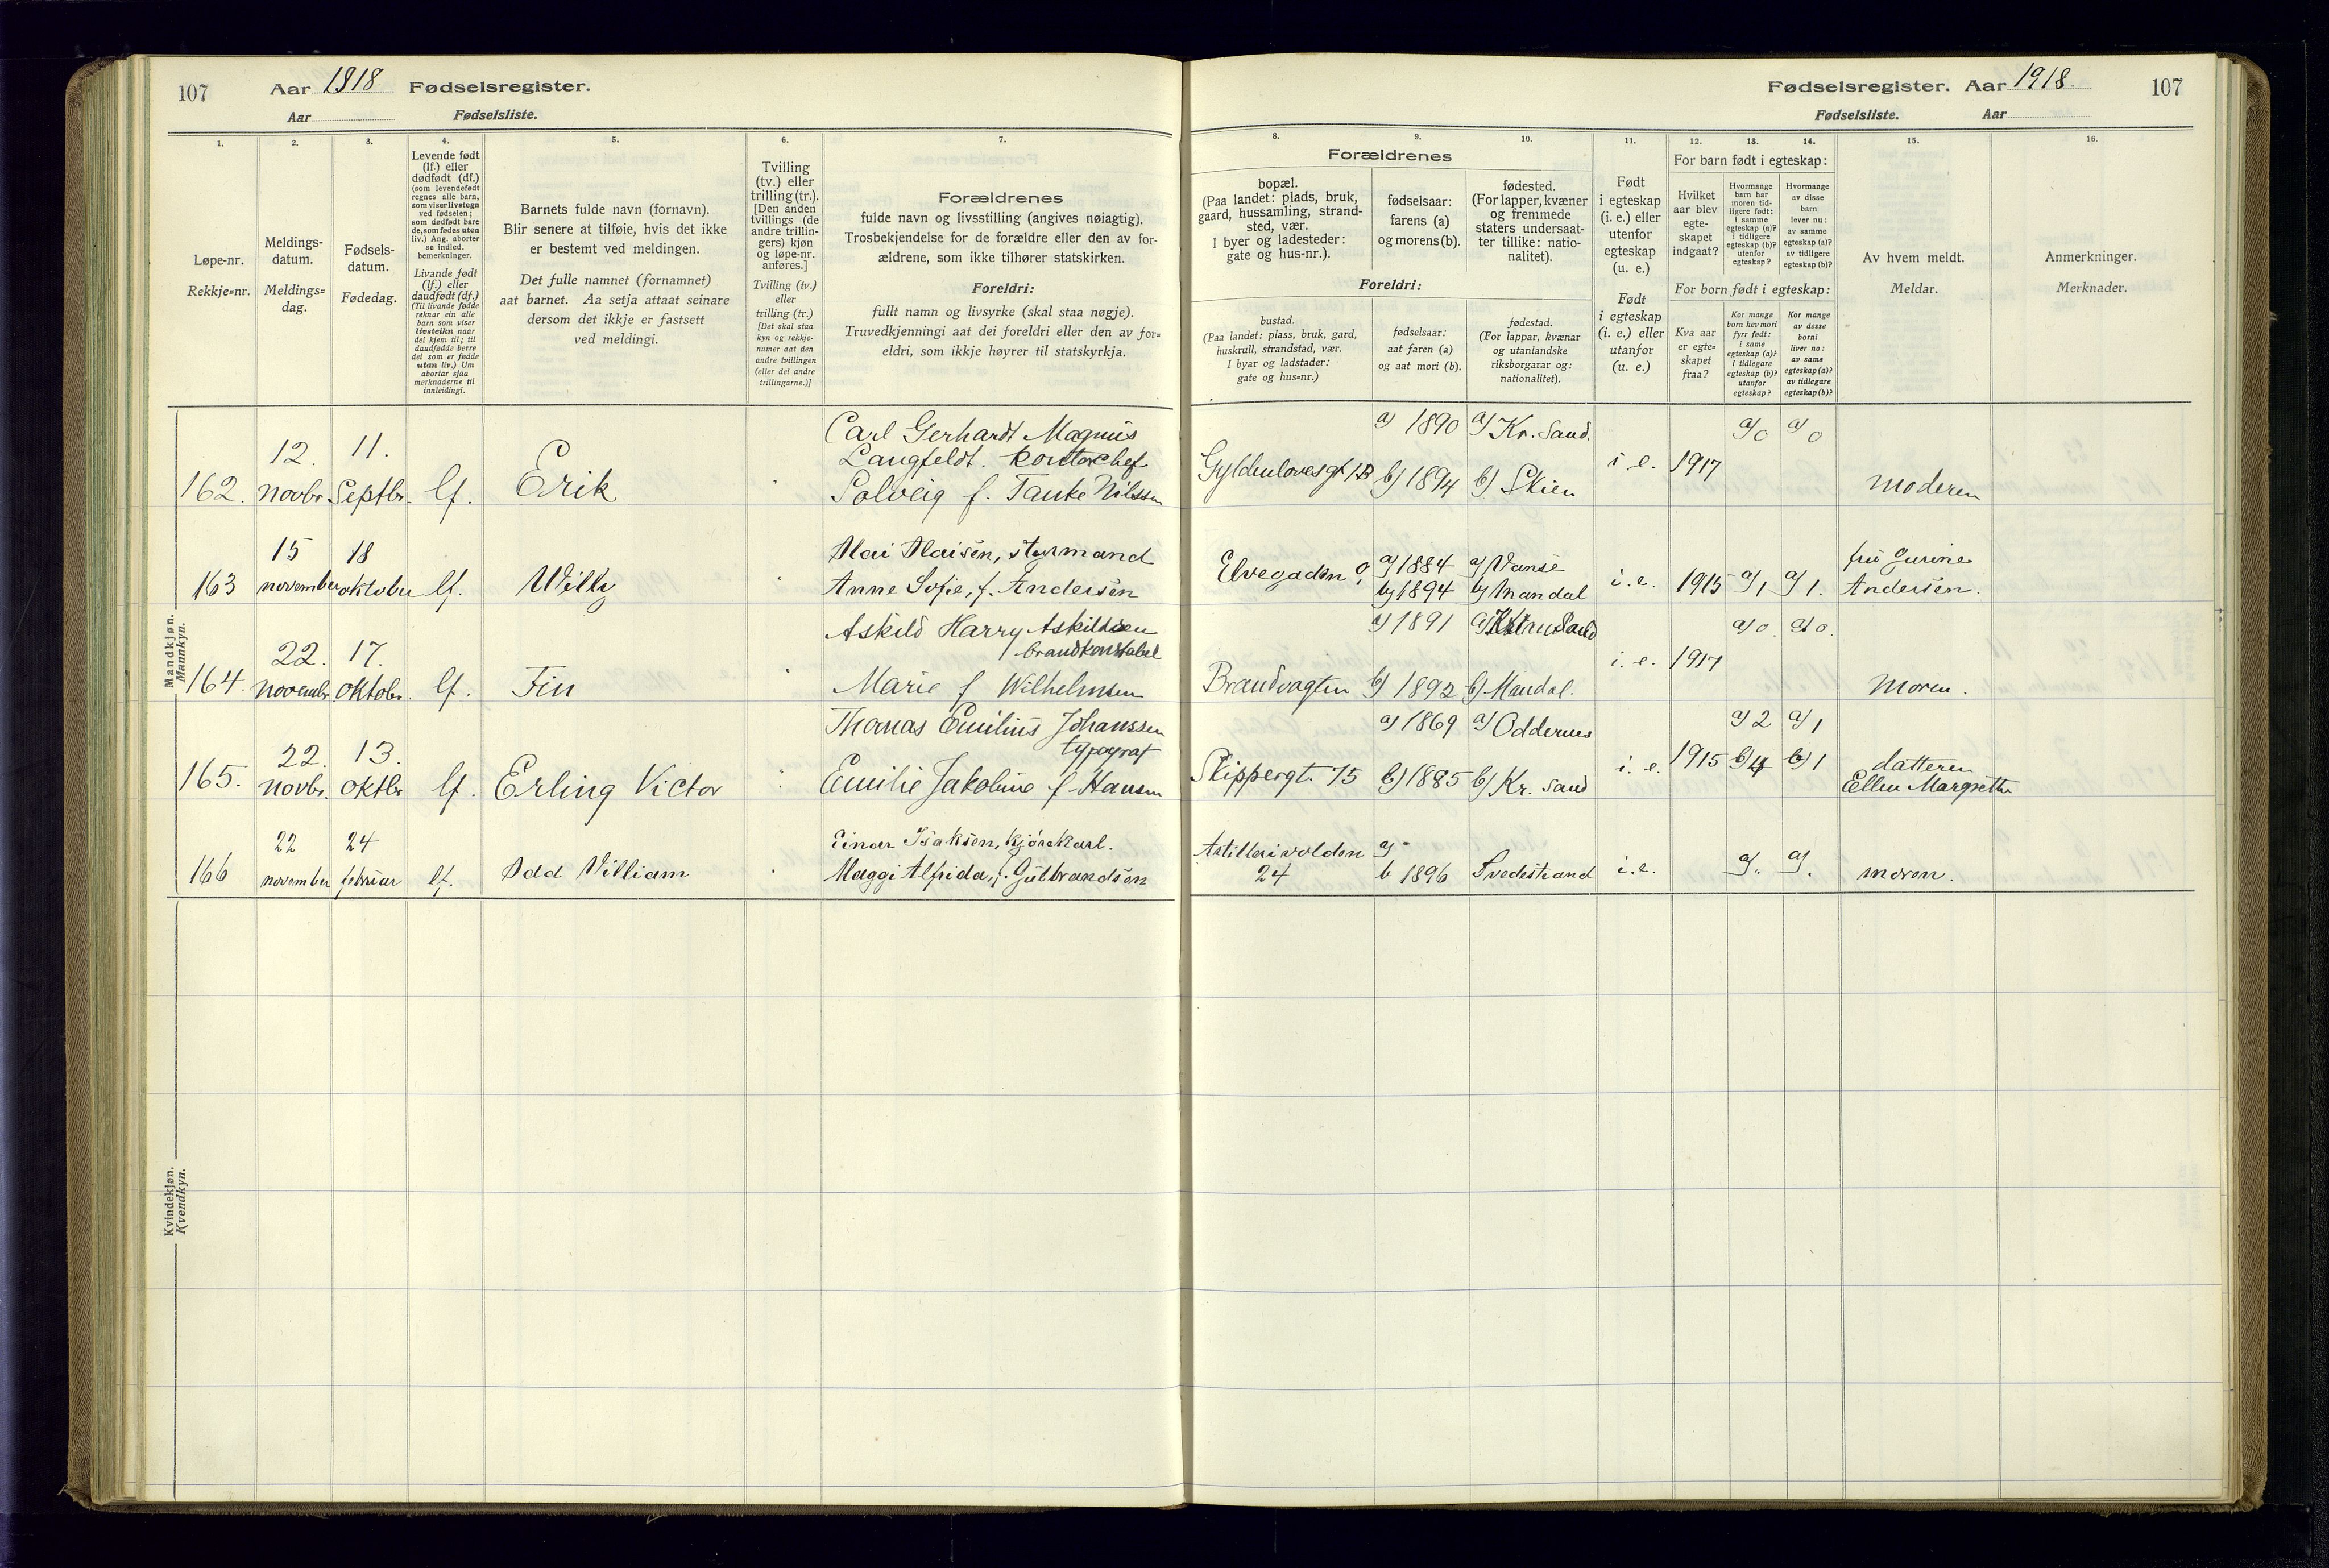 107 Aar 1918 Fødselsregister.
Aar Fødselsliste.
1.
Løpe-nr.
Rekkje-nr.
2.
Meldings-
datum.
Meldings-
dag.
3.
Fødsels-
datum.
Fødedag.
4.
Levende født
(lf.) eller
dødfødt (df.)
(som levendefødt
regnes alle barn,
som viser livstegn
ved fødselen;
som dødfødt bare
de, som fødes uten
liv.) Ang. aborter
se indled.
bemerkninger.
Livande født
(lf.) eller
daudfødt (df.)
(Til livande fødde
reknar ein alle
barn som viser
livsteikn naar
dei kjem til; til
daudfødde berre
dei som er fødde
utan liv.) Um
abortar sjaa
merknaderne til
innleidingi.
5.
Barnets fulde navn (fornavn).
Blir senere at tilføie, hvis det ikke
er bestemt ved meldingen.
Det fulle namnet (fornamnet)
aat barnet. Aa setja attaat seinare
dersom det ikkje er fastsett
ved meldingi.
6.
Tvilling
(tv.) eller
trilling (tr.).
[Den anden
tvillings (de
andre trillin-
gers) kjøn
og løpe-nr.
anføres.]
Tvilling (tv.)
eller
trilling (tr.)
[Det skal staa
kyn og rekkje-
numer aat den
andre tvillingen
(eller dei andre
trillingarne.)]
7.
Forældrenes
fulde navn og livsstilling (angives nøiagtig).
Trosbekjendelse for de forældre eller den av for-
ældrene, som ikke tilhører statskirken.
Foreldri:
fullt namn og livsyrke (skal staa nøgje).
Truvedkjenningi aat dei foreldri eller den av for-
eldri, som ikkje høyrer til statskyrkja.
Mandkjøn.
Mannkyn.
Carl Gerhardt Magnus
12. 11. Langfeldt. Kontorchef
162. novbr. Septbr. lf. Erik Solveig f. Tanke Nilssen
15 18 Alai Alaisen, styrmand
163 november oktober lf. Willy Anne Sofie, f. Andersen
Askild Harry Askildsen
22. 17. brandkonstabel
164. novembr. oktobr. lf. Fin Marie f Wilhelmsen
Thomas Emilius Johanssen
22. 13. typograf
165. novbr. oktbr lf. Erling Victor Emilie Jakobine f Hansen
22 24 Einar Isaksen, kjørekarl.
166 november februar lf. Odd William Maggi Alfrida, f. Gulbrandsen
Kvindekjøn.
Kvendkyn.
Fødselsregister. Aar 1918. 107
Fødselsliste. Aar
8. 9. 10.
Forældrenes
bopæl.
(Paa landet: plads, bruk,
gaard, hussamling, strand-
sted, vær.
I byer og ladesteder:
gate og hus-nr.).
fødselsaar:
farens (a)
og morens (b).
fødested.
(For lapper, kvæner
og fremmede
staters undersaat-
ter tillike: natio-
nalitet).
Foreldri:
bustad.
(Paa landet: plass, bruk, gard,
huskrull, strandstad, vær.
I byar og ladstader:
gate og hus-nr.)
fødselsaar:
aat faren (a)
og aat mori (b).
fødestad.
(For lappar, kvænar
og utanlandske
riksborgarar og:
nationalitet).
11.
Født
i egteskap
(i. e.) eller
utenfor
egteskap
(u. e.)
Født
i egteskap
(i. e.) eller
utanfor
(u. e.)
12. 13. 14.
For barn født i egteskap:
Hvilket
aar blev
egte-
skapet
indgaat?
Hvormange
barn har
moren tid-
ligere født:
i samme
egteskap (a)?
i tidligere
egteskap (b)?
utenfor
egteskap?
Hvormange
av disse
barn
lever nu:
av samme
egteskap (a)?
av tidligere
egteskap (b)?
For born født i egteskap:
Kva aar
er egte-
skapet
fraa?
Kor mange
born hev mori
fyrr født:
i same
egteskap (a)?
i tidlegare
egteskap (b)?
utanfor
egteskap?
Kor mange
av desse
borni
liver no:
av same
egteskap (a)?
av tidlegare
egteskap (b)?
15.
Av hvem meldt.
Meldar.
16.
Anmerkninger.
Merknader.
a) 1890 a) Kr. sand. a) 0 a) 0
Gyldenlovesgt b) 1894 b) Skien i e. 1917 Moderen
Elvegaden a) 1884 a) Vanse fru Gurine
b) 1894 b) Mandal i. e. 1915 a) 1 a) 1. Andersen.
a) 1891 a) Sand a) 0. a) 0.
Brandvagten b) 1892 b) Mandal. i. e. 1917 Moren.
a) 1869 a) Oddernes a) 2 a) 1
Skippergt. 75 b) 1885 b) Kr. sand i. e. 1915 b) 4 b) 1 datteren
Ellen Margrethe
Artillerivolden a) -
24 b 1896 Tvedestrand i. e. a). a). moren.